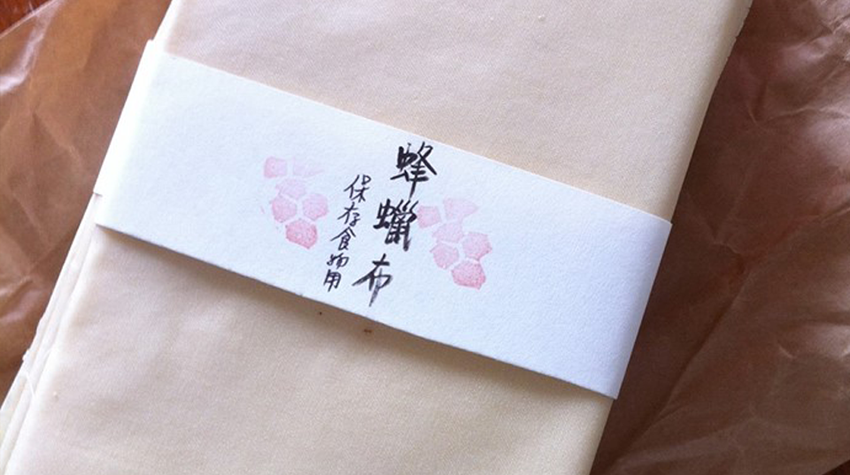 蜂蠟布
保存食物用